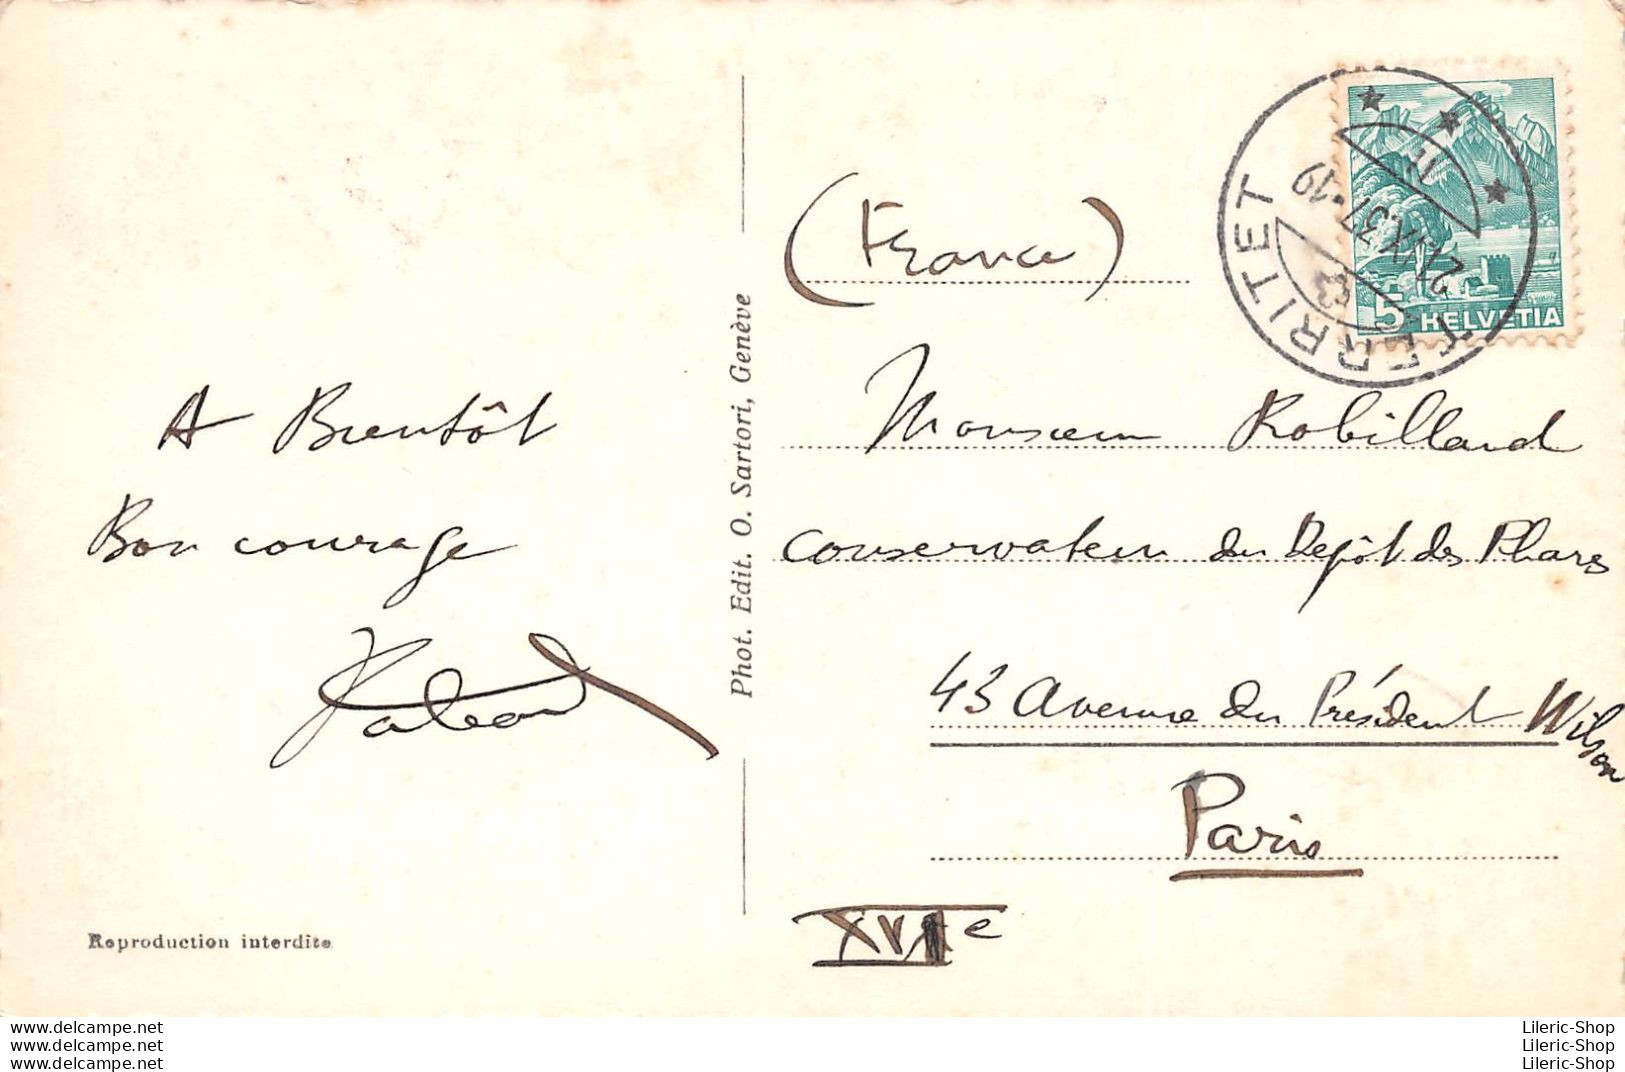 A Bientôt
Bon courage
Reproduction interdite
Phot. Edit. O. Sartori, Genève
TERRITET
21.IX.37-19
5 HELVETIA
(France)
Monsieur Robillard
Conservateur du Depôt des Phares
43 Avenue du Président Wilson
Paris
XVIe
www.delcampe.net
www.delcampe.net
www.delcampe.net
Lileric-Shop
Lileric-Shop
Lileric-Shop